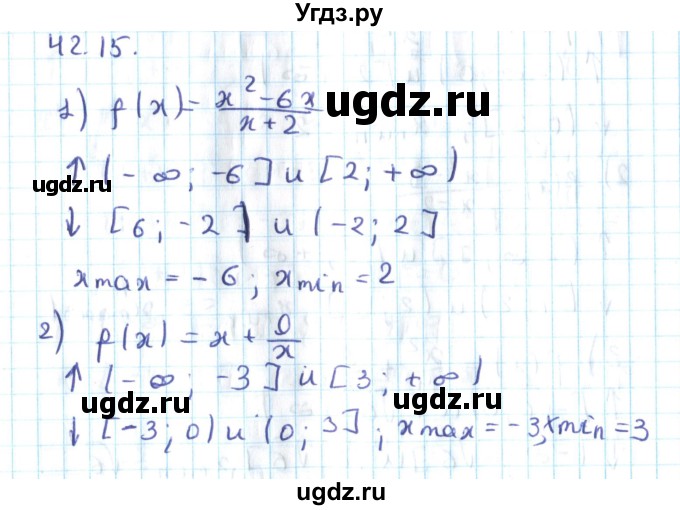 Угдз.ру
42.15.
1) f(x) = \frac{x^2-6x}{x+2}
ugdz.ru
↑ (-∞; -6] и [2; +∞)
ugdz.ru
↓ [6; -2] и (-2; 2]
x max = -6; x min = 2
2) f(x) = x + \frac{9}{x}
↑ (-∞; -3] и [3; +∞)
ugdz.ru ugdz.ru
↓ [-3; 0) и (0; 3]; x max = -3, x min = 3
ugdz.ru